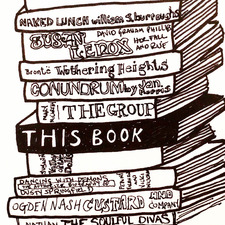 NAKED LUNCH william S. burroughs
SUSAN
LENOX
DAVID GRAHAM PHILLIPS
HER FALL
AND RISE
Brontë Wuthering Heights
CONUNDRUM by Jan
Morris
THE GROUP
THIS BOOK
DANCING WITH DEMONS
DUSTY SPRINGFIELD
OGDEN NASH CUSTARD AND
COMPANY
NATHAN THE SOULFUL DIVAS